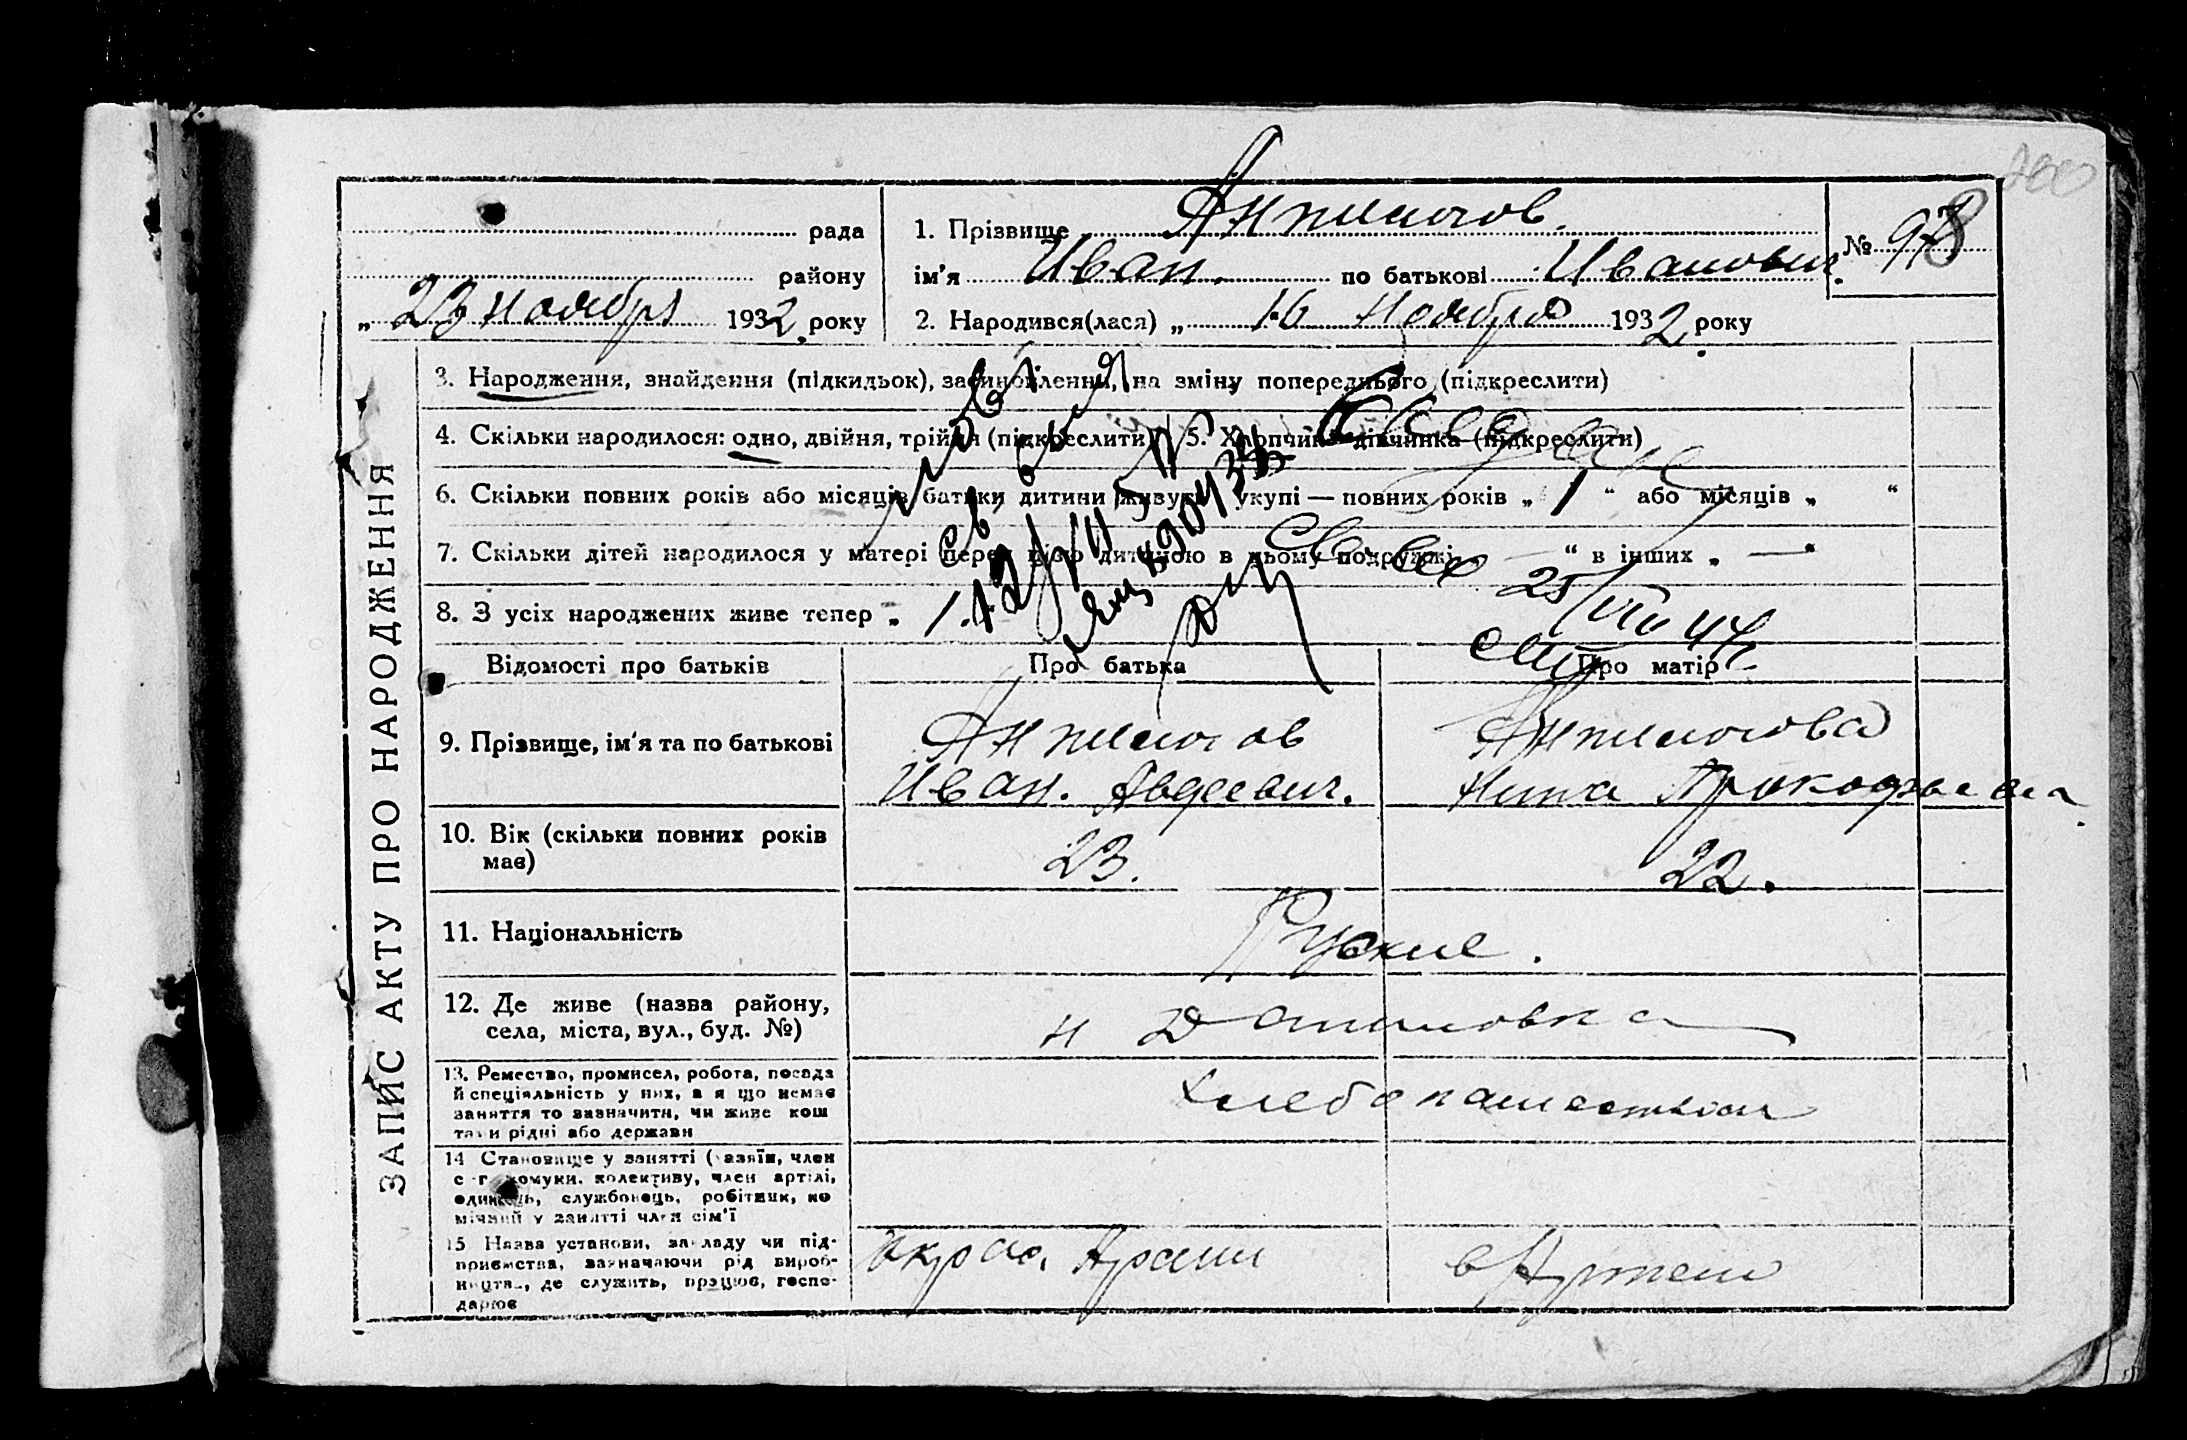 200
рада
району
„ 23 ноября 1932 року
1. Прізвище Анпилогов.
ім'я Иван. по батькові Иванович.
№ 978
2. Народився(лася) „ 16 Ноября 1932 року
ЗАПИС АКТУ ПРО НАРОДЖЕННЯ
3. Народження, знайдення (підкидьок), засиновлення, на зміну попереднього (підкреслити)
4. Скільки народилося: одно, двійня, трійня (підкреслити) 5. Хлопчик дівчинка (підкреслити)
6. Скільки повних років або місяців батьки дитини живуть укупі — повних років „ 1 “ або місяців „ “
7. Скільки дітей народилося у матері перед цією дитиною в цьому подружжі „ — “ в інших „ — “
8. З усіх народжених живе тепер „ 1.
25/VIII 44
Відомості про батьків Про батька Про матір
9. Прізвище, ім'я та по батькові
Анпилогов
Иван. Авдеевич.
Анпилогова
Нина Прокофьевна
10. Вік (скільки повних років має)
23. 22.
11. Національність
Руские.
12. Де живе (назва району,
села, міста, вул., буд. №)
н Даниловка
13. Ремество, промисел, робота, посада
й спеціяльність у них, а я що немає
заняття то зазначити, чи живе кош
тами рідні або держави
Хлебопашеством
14 Становище у занятті (хазяїн, член
с-г комуни, колективу, член артілі,
одинець, службонець, робітник, по
мічний у занятті член сім'ї
15 Назва установи, закладу чи під-
приємства, зазначаючи рід вироб-
ництва, де служить, працює, госпо-
дарює
в Артели